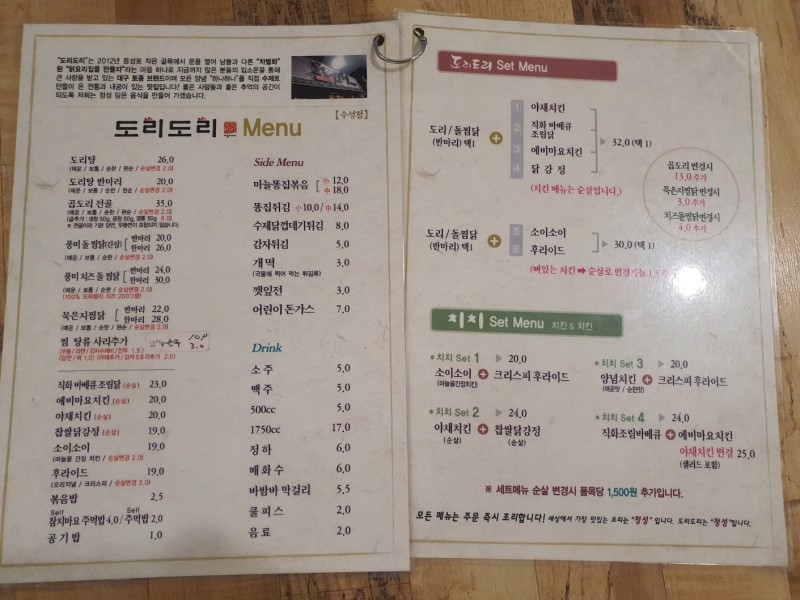 "도리도리"는 2012년 동성로 작은 골목에서 문을 열어 남들과 다른 "차별화
된 "닭요리집을 만들자"라는 마음 하나로 지금까지 많은 분들의 입소문을 통해
큰 사랑을 받고 있는 대구 토종 브랜드이며 모든 양념 "하나하나"를 직접 수제로
만들어 온 전통과 내공이 있는 맛집입니다! 좋은 사람들과 좋은 추억의 공간이
되도록 저희는 정성 담은 음식을 만들어 가겠습니다.
[수성점]
도리도리 Menu
도리탕 26,0
(매운 / 보통 / 순한 / 찐순 / 순살변경 2,0)
도리탕 반마리 20,0
(매운 / 보통 / 순한 / 찐순 / 순살변경 2,0)
곱도리 전골 35,0
(매운 / 보통 / 순한 / 찐순 / 순살변경 2,0)
풍미 돌 찜닭(간장) 반마리 20,0
한마리 26,0
(매운 / 보통 / 순한 / 순살변경 2,0)
풍미 치즈 돌 찜닭 반마리 24,0
한마리 30,0
(매운 / 보통 / 순한 / 순살변경 2,0)
(100% 모짜렐라 치즈 200그램)
묵은지찜닭 반마리 22,0
한마리 28,0
(매운 / 보통 / 순한 / 찐순 / 순살변경 2,0)
찜 탕류 사리추가
직화 바베큐 조림닭 (순살) 23,0
에비마요치킨 (순살) 20,0
야채치킨 (순살) 20,0
찹쌀닭강정 (순살) 19,0
소이소이 19,0
(마늘쫑 간장 치킨 / 순살변경 2,0)
후라이드 19,0
(오리지널 / 크리스피 / 순살변경 2,0)
볶음밥 2,5
Self Self
참치마요 주먹밥 4,0 / 주먹밥 2,0
공기밥 1,0
Side Menu
마늘똥집볶음 小 12,0
中 18,0
똥집튀김 小 10,0 / 中 14,0
수제닭껍데기튀김 8,0
감자튀김 5,0
개떡 3,0
(국물에 찍어 먹는 튀김류)
깻잎전 3,0
어린이 돈가스 7,0
Drink
소주 5,0
맥주 5,0
500cc 5,0
1750cc 17,0
정하 6,0
매화수 6,0
바밤바 막걸리 5,5
쿨피스 2,0
음료 2,0
도리도리 Set Menu
도리 / 돌찜닭
(반마리) 택1
1 야채치킨
2 직화 바베큐
조림닭
3 에비마요치킨
4 닭강정
32,0 (택 1)
(치킨 메뉴는 순살입니다.)
곱도리 변경시
13,0 추가
묵은지찜닭 변경시
3,0 추가
치즈돌찜닭변경시
4,0 추가
도리/돌찜닭
(반마리) 택1
5 소이소이
6 후라이드
30,0 (택 1)
(뼈있는 치킨 ➡ 순살로 변경가능
치치 Set Menu 치킨 & 치킨
*치치 Set 1 ▶ 20,0
소이소이 + 크리스피 후라이드
(마늘쫑간장치킨)
*치치 Set 2 ▶ 24,0
야채치킨 + 찹쌀닭강정
(순살) (순살)
*치치 Set 3 ▶ 20,0
양념치킨 + 크리스피후라이드
(매운맛 / 순한맛)
*치치 Set 4 ▶ 24,0
직화조림바베큐 + 에비마요치킨
야채치킨 변경 25,0
(샐러드 포함)
※ 세트메뉴 순살 변경시 품목당 1,500원 추가입니다.
모든 메뉴는 주문 즉시 조리합니다! 세상에서 가장 맛있는 요리는 "정성" 입니다. 도리도리는 "정성"입니다.